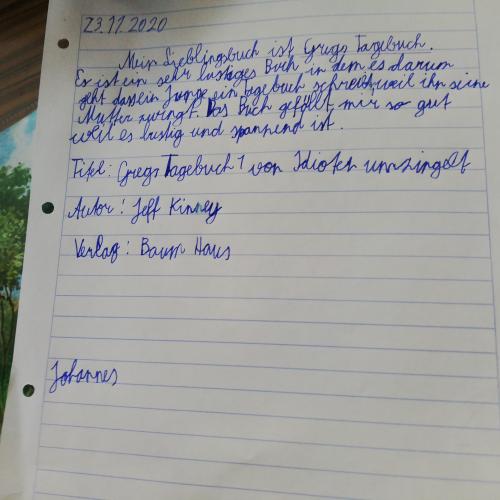 23.11.2020
Mein Lieblingsbuch ist Gregs Tagebuch.
Es ist ein sehr lustiges Buch in dem es darum
geht dass ein Junge ein tagebuch schreibt, weil ihn seine
Mutter zwingt. Das Buch gefällt mir so gut
weil es lustig und spannend ist.
Titel: Gregs Tagebuch 1 von Idioten umzingelt
Autor: Jeff Kinney
Verlag: Baum Haus
Johannes